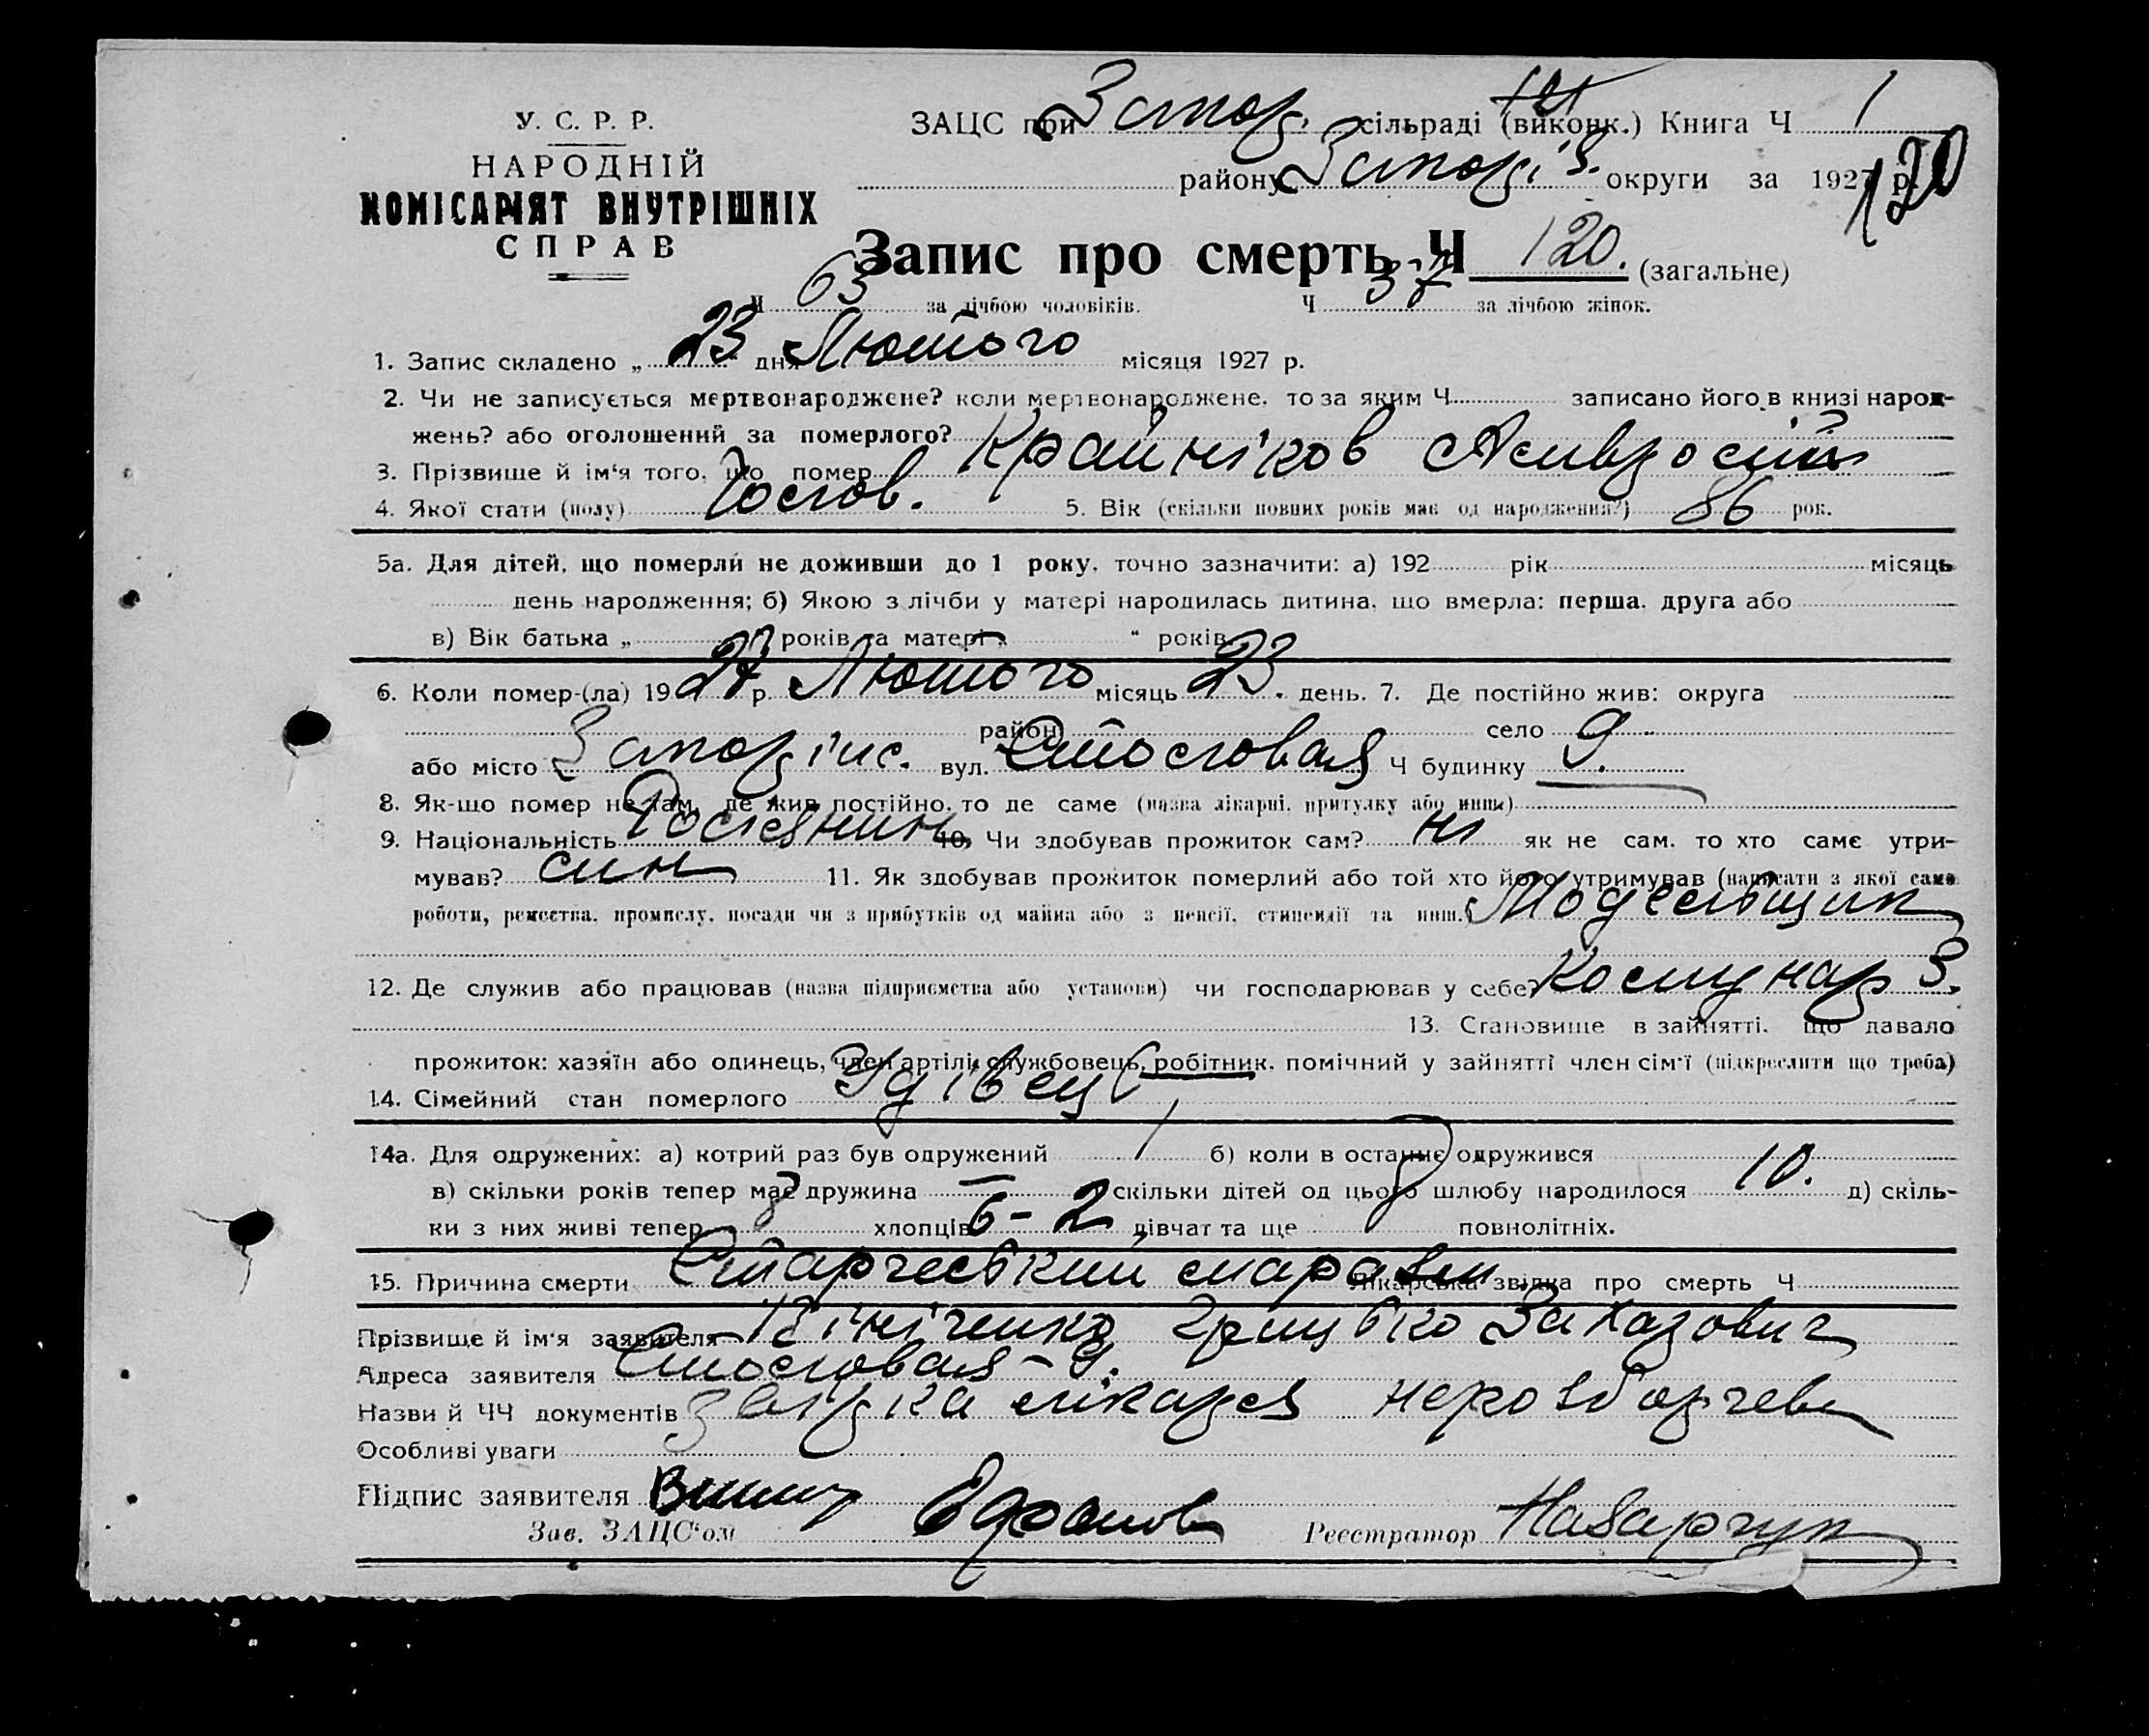 У. С. Р. Р.
НАРОДНІЙ
КОМІСАРІЯТ ВНУТРІШНІХ
СПРАВ
ЗАЦС при Запор. сільраді (виконк.) Книга Ч 1
району Запоріз. округи за 1927 р.
120
Запис про смерть Ч 120. (загальне)
Ч 63 за лічбою чоловіків. Ч 37 за лічбою жінок.
1. Запис складено „ 23 " дня Лютого місяця 1927 р.
2. Чи не записується мертвонароджене? коли мертвонароджене, то за яким Ч записано його в книзі народ-
жень? або оголошений за померлого?
3. Прізвище й ім'я того, що помер Крайніков Амвросій
4. Якої стати (полу) Чолов. 5. Вік (скільки повних років має од народження?) 86 рок.
5а. Для дітей, що померли не доживши до 1 року, точно зазначити: а) 192 рік місяць
день народження; б) Якою з лічби у матері народилась дитина, що вмерла: перша, друга або
в) Вік батька „ " років та матері „ " років
6. Коли помер-(ла) 1927 р. Лютого місяць 23. день. 7. Де постійно жив: округа
район село
або місто Запоріж. вул. Столовая Ч будинку 9.
8. Як-що помер не там, де жив постійно, то де саме (назва лікарні, притулку або инш.)
9. Національність Росіянин 10. Чи здобував прожиток сам? ні як не сам, то хто саме утри-
мував? син 11. Як здобував прожиток померлий або той хто його утримував (написати з якої саме
роботи, ремества, промислу, посади чи з прибутків од майна або з пенсії, стипендії та инш.) Модельщик
12. Де служив або працював (назва підприємства або установи) чи господарював у себе? Комунар З.
13. Становище в зайнятті, що давало
прожиток: хазяїн або одинець, член артілі, службовець, робітник, помічний у зайнятті член сім'ї (підкреслити що треба)
14. Сімейний стан померлого Удівець
14а. Для одружених: а) котрий раз був одружений 1 б) коли в останнє одружився
в) скільки років тепер має дружина — скільки дітей од цього шлюбу народилося 10. д) скіль-
ки з них живі тепер 8 хлопців 6 - 2 дівчат та ще повнолітніх.
15. Причина смерти Старческий маразм Лікарська звідка про смерть Ч
Прізвище й ім'я заявителя Вініченко Грицько Захарович
Адреса заявителя Столовая - 9.
Назви й ЧЧ документів звідка лікаря
Особливі уваги
Підпис заявителя
Зав. ЗАЦС'ом
Реєстратор Назарчук